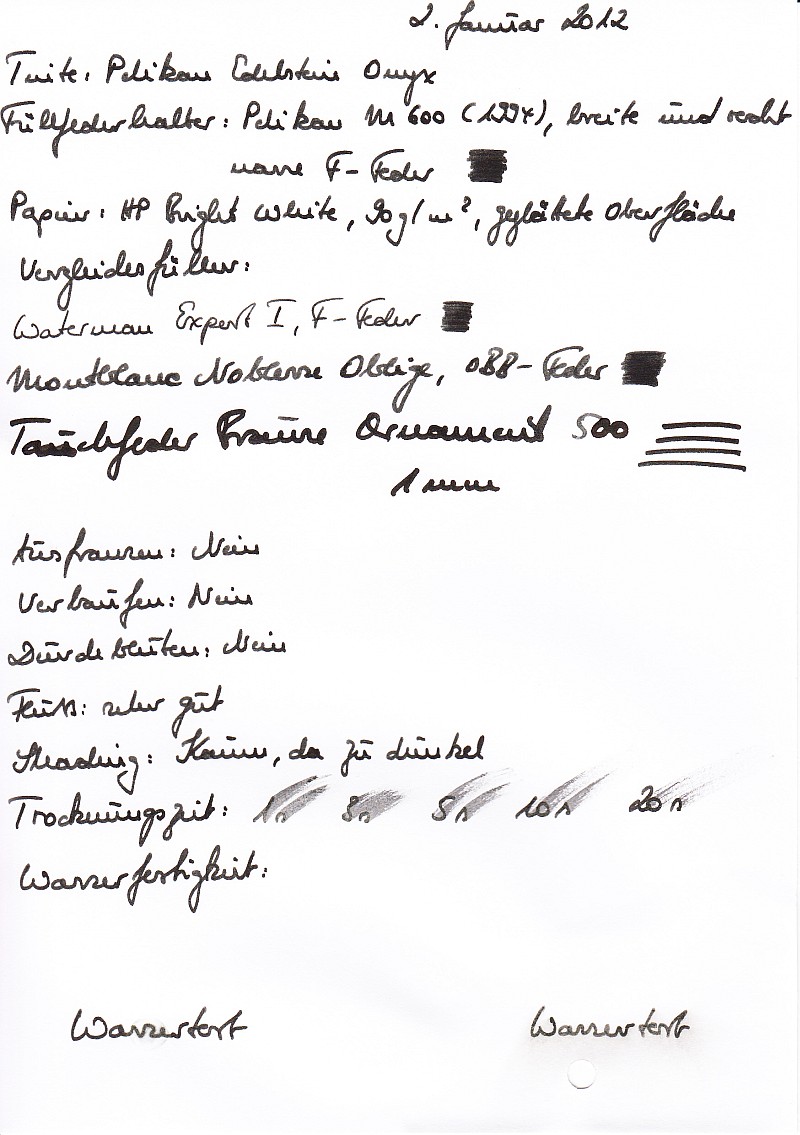 2. Januar 2012
Tinte: Pelikan Edelstein Onyx
Füllfederhalter: Pelikan M 600 (1994), breite und recht
nasse F-Feder
Papier: HP Bright White, 90g/m², geglättete Oberfläche
Vergleichsfüller:
Waterman Expert I, F-Feder
Montblanc Noblesse Oblige, OBB-Feder
Tauchfeder Brause Ornament 500
1 mm
Ausfransen: Nein
Verlaufen: Nein
Durchbluten: Nein
Fluss: sehr gut
Shading: Kaum, da zu dunkel
Trocknungszeit: 1s 3s 5s 10s 20s
Wasserfestigkeit:
Wassertest Wassertest